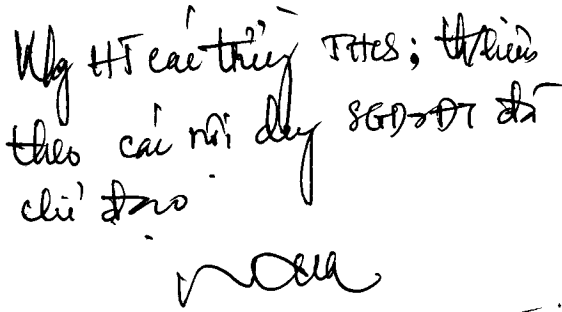 HT các trường THCS; thực hiện
theo các nội dung SGD&ĐT đã
chỉ đạo.